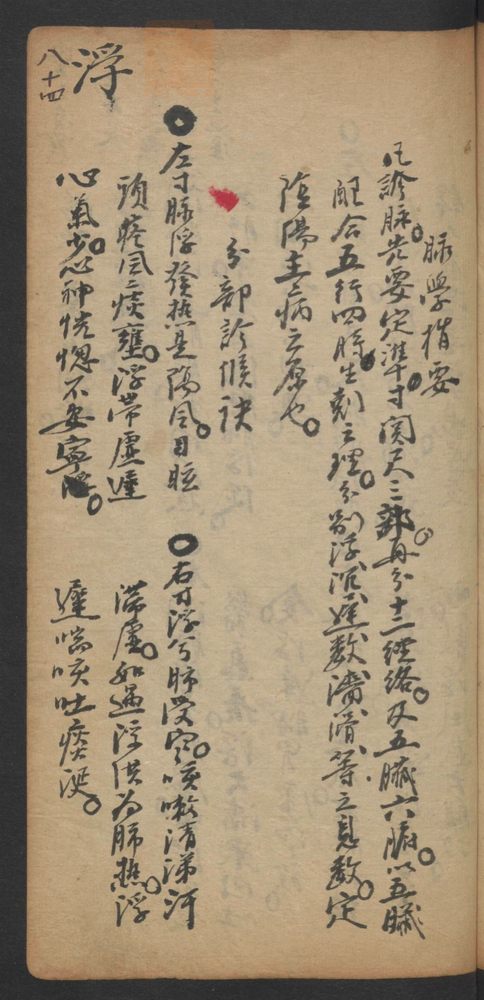 脉學指要
凡診脉。先要定準寸関尺三部。再分十二經絡。及五臟六腑。以五臟
配合五行四時生剋之理。分別浮沉遲数濇滑等之息数。定
陰陽主病之原也。
分部診候訣
左寸脉浮發熱是陽風。目眩
頭疼風痰壅。浮帶虛遲
心氣少。心神恍惚不安寧。
右寸浮兮肺受寒。咳嗽清涕汗
帶虛。如遇浮洪为肺熱。浮
遲喘咳吐痰涎。
浮
八十四